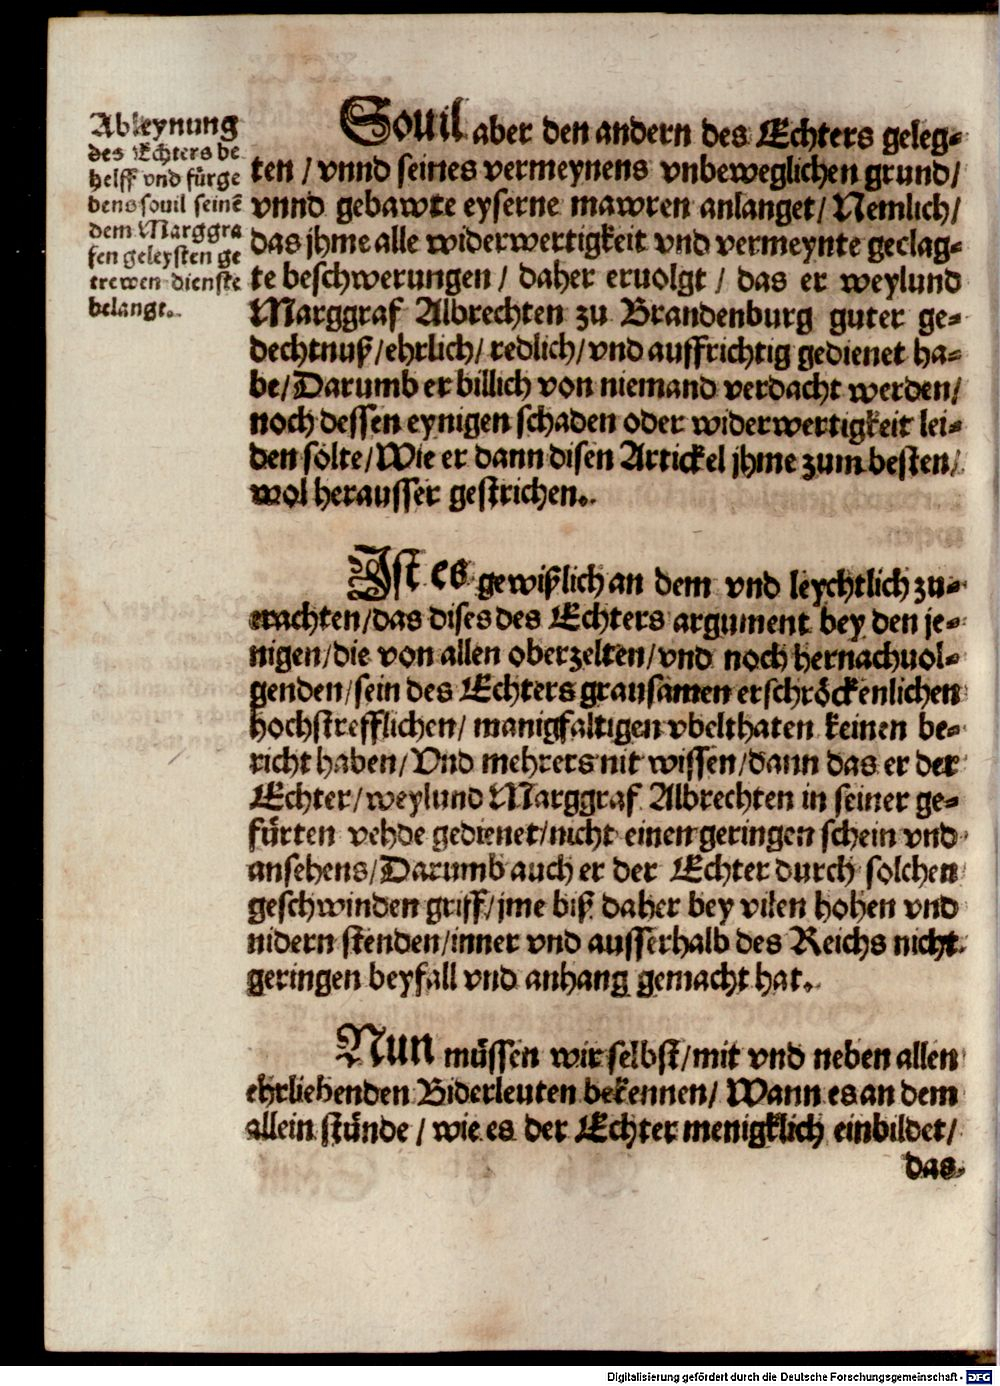 Ableynung
des Echters be
helff vnd fürge
dens souil seinē
dem Marggra
fen geleysten ge
trewen dienste
belangt.
Souil aber den andern des Echters geleg-
ten / vnnd seines vermeynens vnbeweglichen grund/
vnnd gebawte eyserne mawren anlanget/ Nemlich/
das jhme alle widerwertigkeit vnd vermeynte geclag-
te beschwerungen / daher eruolgt / das er weylund
Marggraf Albrechten zu Brandenburg guter ge-
dechtnuß/ehrlich/ redlich/vnd auffrichtig gedienet ha-
be/Darumb er billich von niemand verdacht werden/
noch dessen eynigen schaden oder widerwertigkeit lei-
den solte/Wie er dann disen Artickel jhme zum besten/
wol herausser gestrichen.
Ist es gewißlich an dem vnd leychtlich zu-
erachten/das dises des Echters argument bey den je-
nigen/die von allen oberzelten/vnd noch hernachuol-
genden/sein des Echters grausamen erschröckenlichen
hochstrefflichen/ manigfaltigen vbelthaten keinen be-
richt haben/Vnd mehrers nit wissen/dann das er der
Echter/weylund Marggraf Albrechten in seiner ge-
fürten vehde gedienet/nicht einen geringen schein vnd
ansehens/Darumb auch er der Echter durch solchen
geschwinden griff/jme biß daher bey vilen hohen vnd
nidern stenden/inner vnd ausserhalb des Reichs nicht
geringen beyfall vnd anhang gemacht hat.
Nun müssen wir selbst/mit vnd neben allen
ehrliebenden Biderleuten bekennen/ Wann es an dem
allein stünde / wie es der Echter menigklich einbildet/
das
Digitalisierung gefördert durch die Deutsche Forschungsgemeinschaft - DFG